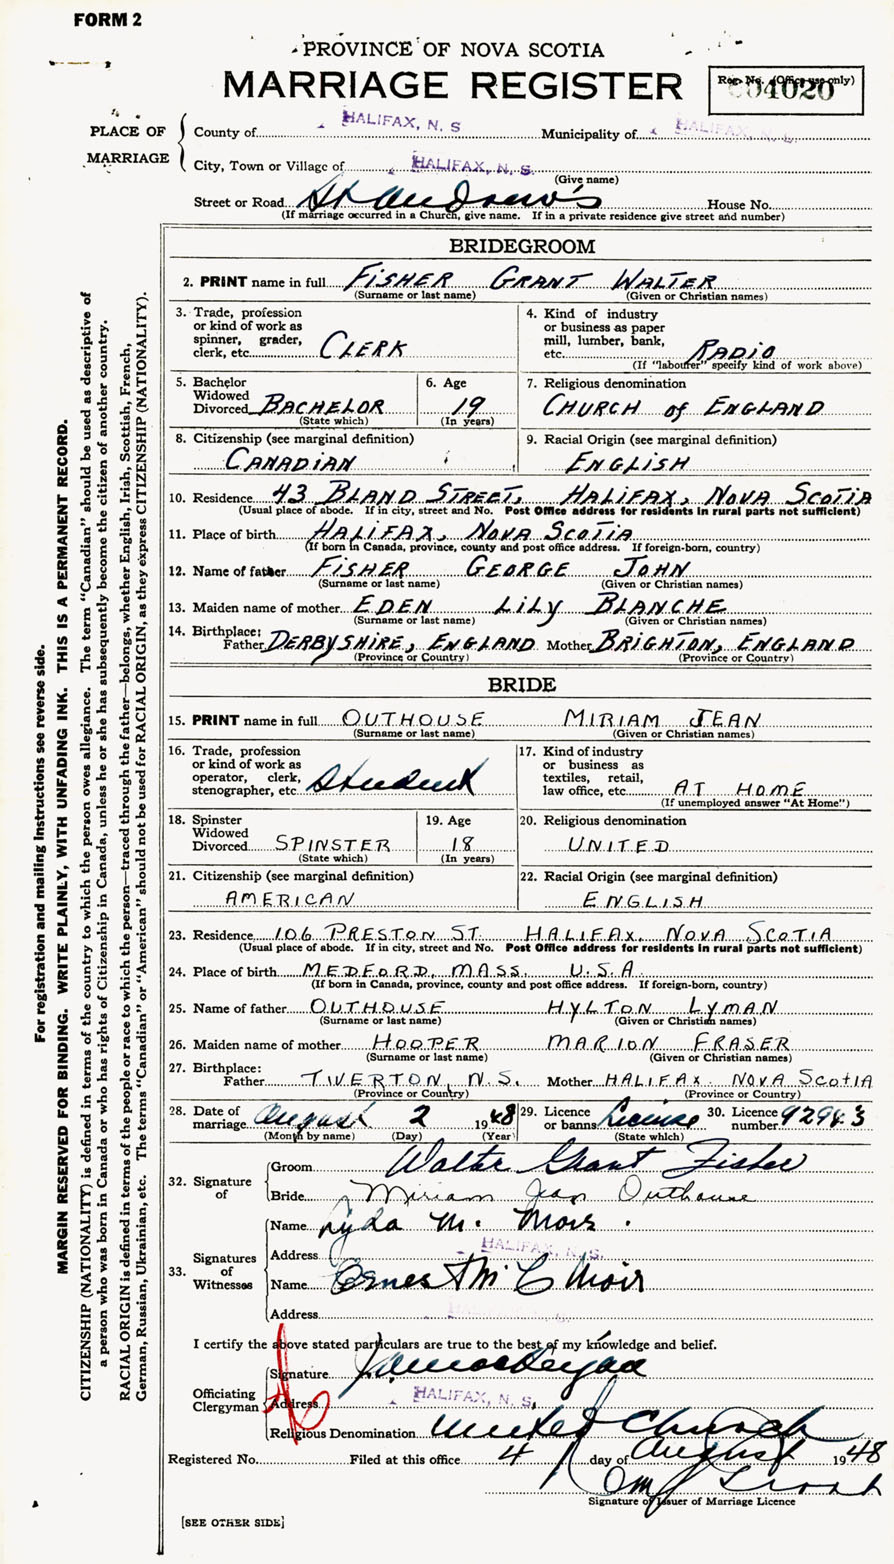 FORM 2
PROVINCE OF NOVA SCOTIA
MARRIAGE REGISTER
Reg. No. (Office use only)
004020
PLACE OF MARRIAGE
County of HALIFAX, N. S Municipality of HALIFAX, N. S.
City, Town or Village of HALIFAX, N. S.
(Give name)
Street or Road St Andrew's House No.
(If marriage occurred in a Church, give name. If in a private residence give street and number)
BRIDEGROOM
2. PRINT name in full FISHER GRANT WALTER
(Surname or last name) (Given or Christian names)
3. Trade, profession or kind of work as spinner, grader, clerk, etc. CLERK
4. Kind of industry or business as paper mill, lumber, bank, etc. RADIO
(If "labourer" specify kind of work above)
5. Bachelor Widowed Divorced BACHELOR
(State which)
6. Age 19
(In years)
7. Religious denomination
CHURCH of ENGLAND
8. Citizenship (see marginal definition)
CANADIAN
9. Racial Origin (see marginal definition)
ENGLISH
10. Residence 43 BLAND STREET, HALIFAX, NOVA SCOTIA
(Usual place of abode. If in city, street and No. Post Office address for residents in rural parts not sufficient)
11. Place of birth HALIFAX, NOVA SCOTIA
(If born in Canada, province, county and post office address. If foreign-born, country)
12. Name of father FISHER GEORGE JOHN
(Surname or last name) (Given or Christian names)
13. Maiden name of mother EDEN LILY BLANCHE
(Surname or last name) (Given or Christian names)
14. Birthplace:
Father DERBYSHIRE, ENGLAND Mother BRIGHTON, ENGLAND
(Province or Country) (Province or Country)
BRIDE
15. PRINT name in full OUTHOUSE MIRIAM JEAN
(Surname or last name) (Given or Christian names)
16. Trade, profession or kind of work as operator, clerk, stenographer, etc. Student
17. Kind of industry or business as textiles, retail, law office, etc. AT HOME
(If unemployed answer "At Home")
18. Spinster Widowed Divorced SPINSTER
(State which)
19. Age 18
(In years)
20. Religious denomination
UNITED
21. Citizenship (see marginal definition)
AMERICAN
22. Racial Origin (see marginal definition)
ENGLISH
23. Residence 106 PRESTON ST. HALIFAX, NOVA SCOTIA
(Usual place of abode. If in city, street and No. Post Office address for residents in rural parts not sufficient)
24. Place of birth MEDFORD, MASS. U.S.A.
(If born in Canada, province, county and post office address. If foreign-born, country)
25. Name of father OUTHOUSE HYLTON LYMAN
(Surname or last name) (Given or Christian names)
26. Maiden name of mother HOOPER MARION FRASER
(Surname or last name) (Given or Christian names)
27. Birthplace:
Father TIVERTON, N.S. Mother HALIFAX NOVA SCOTIA
(Province or Country) (Province or Country)
28. Date of marriage August 2 1948
(Month by name) (Day) (Year)
29. Licence or banns Licence
(State which)
30. Licence number 92943
32. Signature of
Groom Walter Grant Fisher
Bride Miriam Jean Outhouse
33. Signatures of Witnesses
Name Lyda M. Moir.
Address HALIFAX, N. S.
Name Ernest M C Moir
Address HALIFAX, N. S.
I certify the above stated particulars are true to the best of my knowledge and belief.
Officiating Clergyman
Signature
Address HALIFAX, N. S.
Religious Denomination United Church
Registered No. Filed at this office 4 day of August 1948
Signature of Issuer of Marriage Licence
[SEE OTHER SIDE]
For registration and mailing instructions see reverse side.
MARGIN RESERVED FOR BINDING. WRITE PLAINLY, WITH UNFADING INK. THIS IS A PERMANENT RECORD.
CITIZENSHIP (NATIONALITY) is defined in terms of the country to which the person owes allegiance. The term "Canadian" should be used as descriptive of
a person who was born in Canada or who has rights of Citizenship in Canada, unless he or she has subsequently become the citizen of another country.
RACIAL ORIGIN is defined in terms of the people or race to which the person—traced through the father—belongs, whether English, Irish, Scottish, French,
German, Russian, Ukrainian, etc. The terms "Canadian" or "American" should not be used for RACIAL ORIGIN, as they express CITIZENSHIP (NATIONALITY).